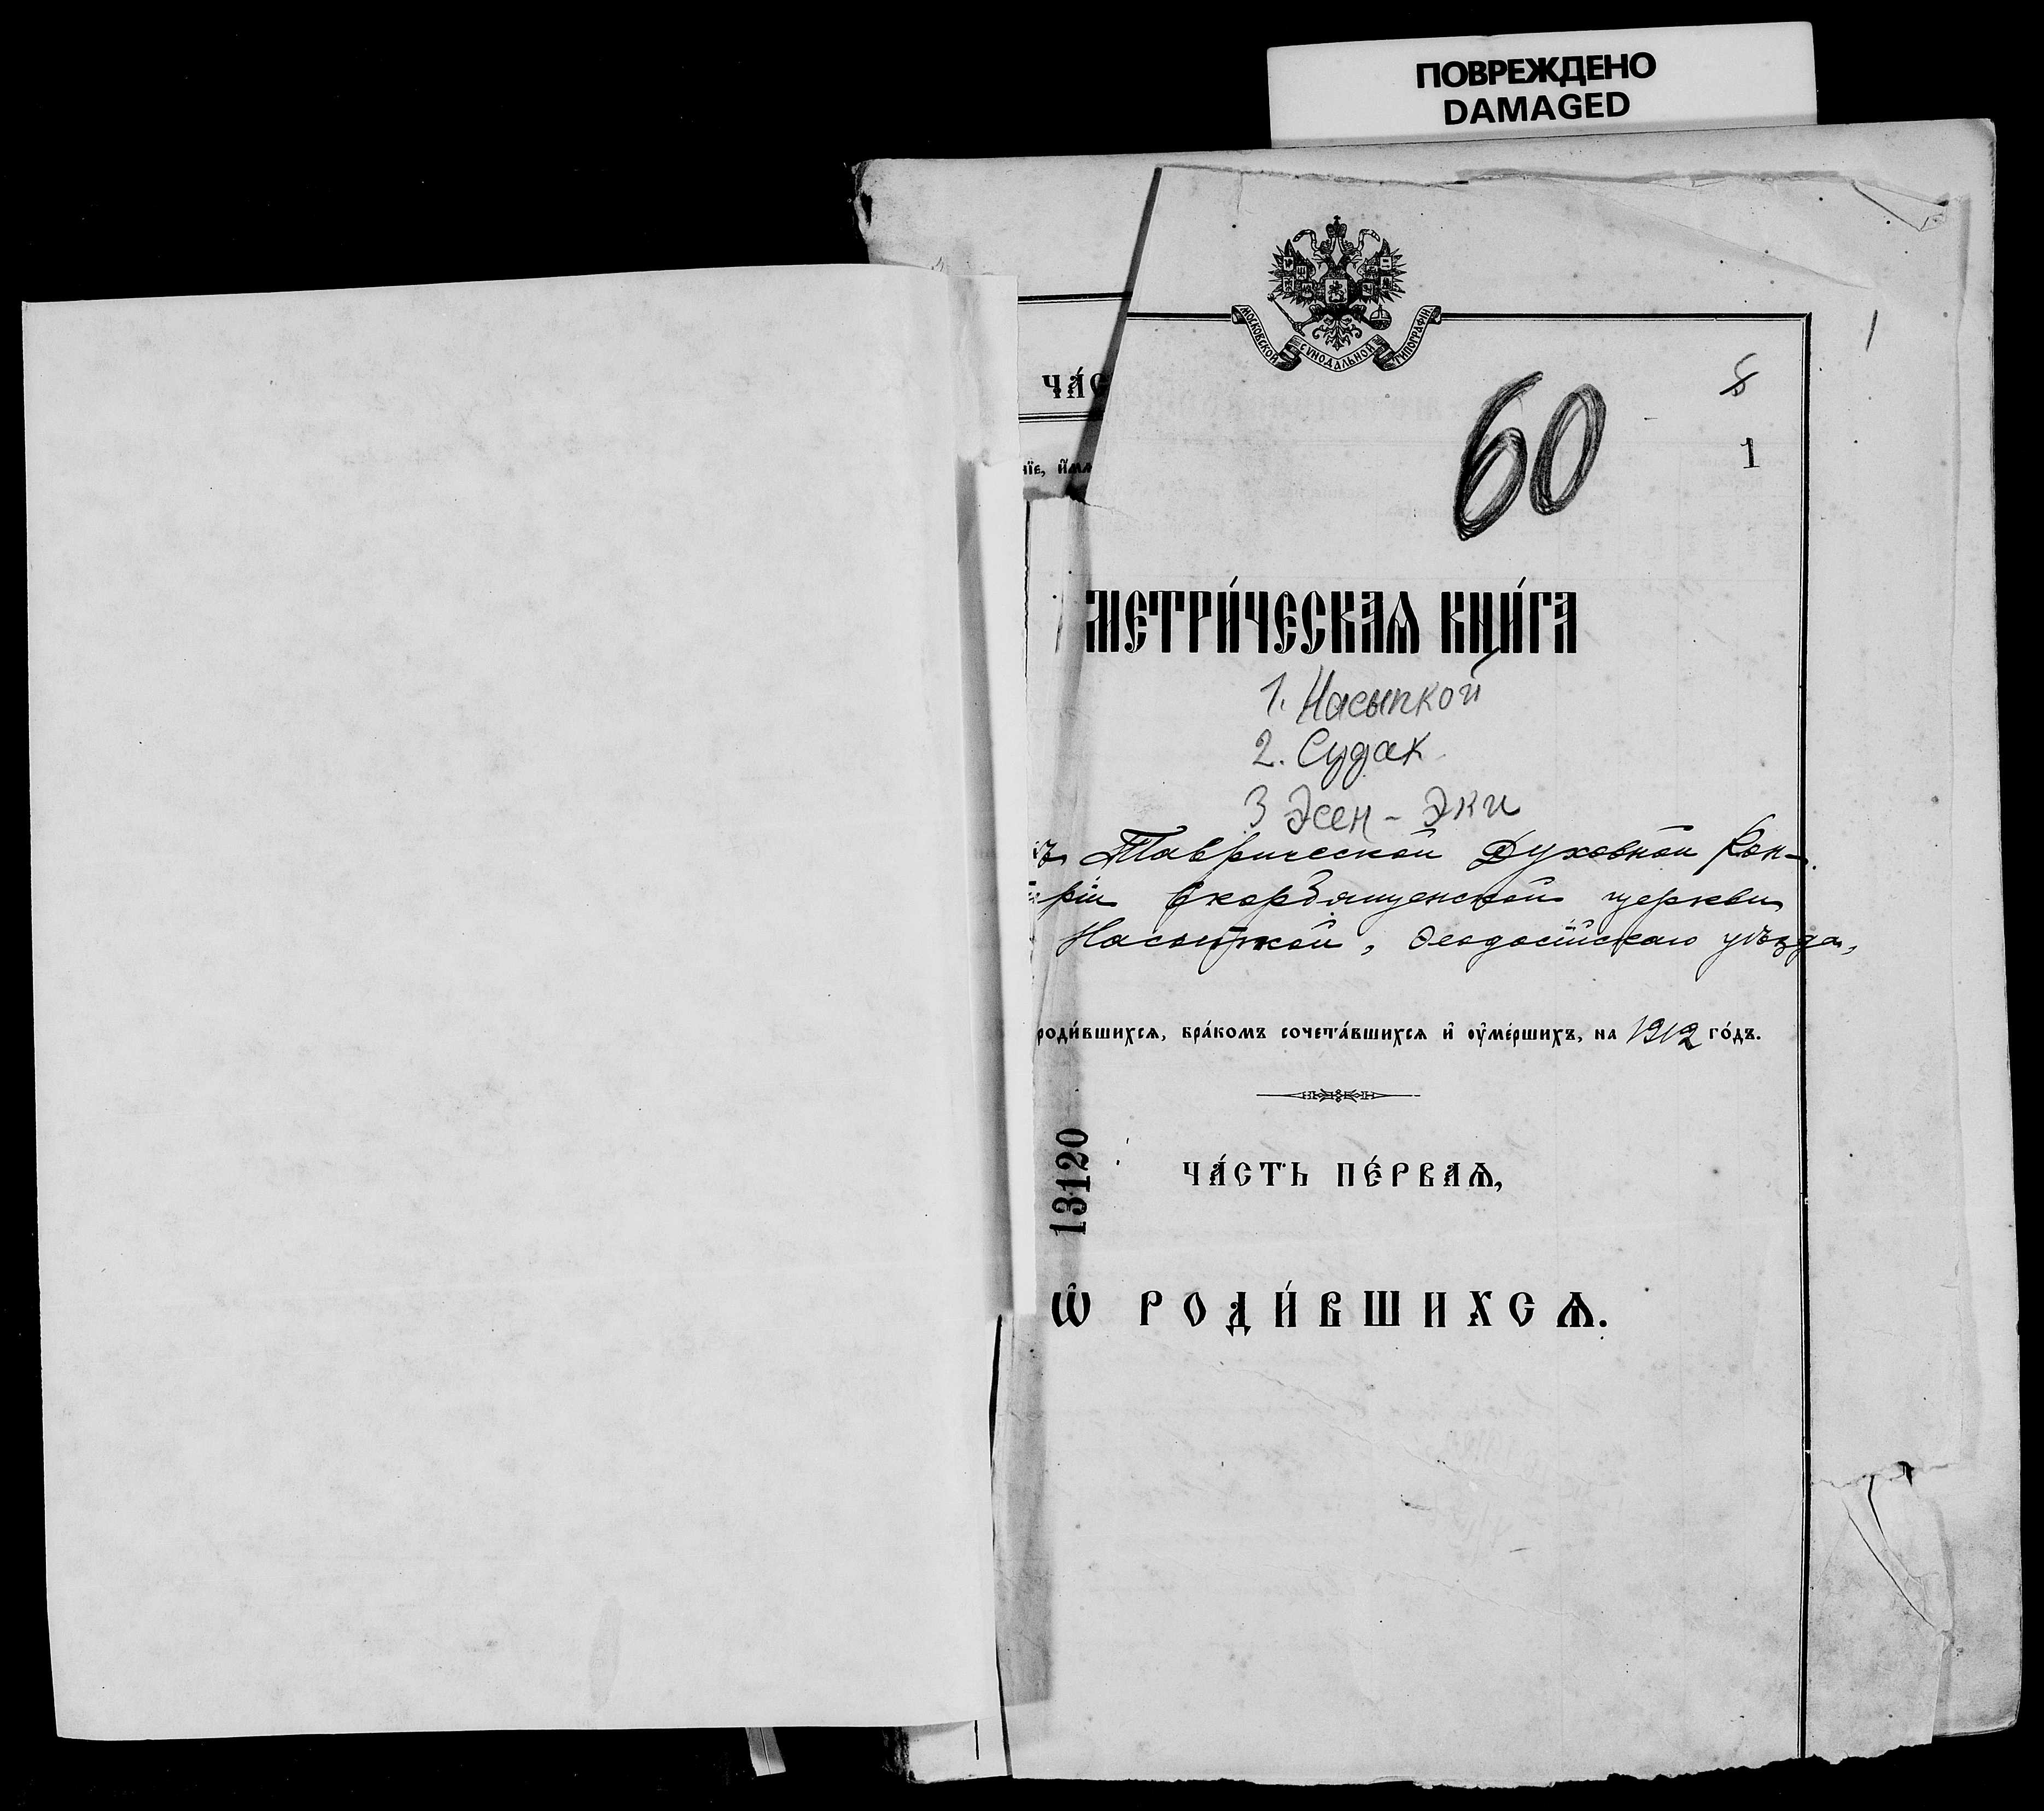 ПОВРЕЖДЕНО
DAMAGED
МОСКОВСКОЙ СѴНОДАЛЬНОЙ ТИПОГРАФІИ
1
ЧА́С
60
1
нїе, и҆́мѧ
МЕТРИ́ЧЕСКАѦ КНИ́ГА
1. Насыпкой
2. Судак
3 Эсен - Эки
изъ Таврической Духовной Кон-
рiи Скорбященской церкви
Насыпкой, Ѳеодосiйскаго уѣзда,
роди́вшихсѧ, бра́комъ сочета́вшихсѧ и҆ ᲂу҆ме́ршихъ, на 1912 го́дъ.
13120
ЧА́СТЬ ПЕ́РВАѦ,
Ѽ РОДИ́ВШИХСѦ.